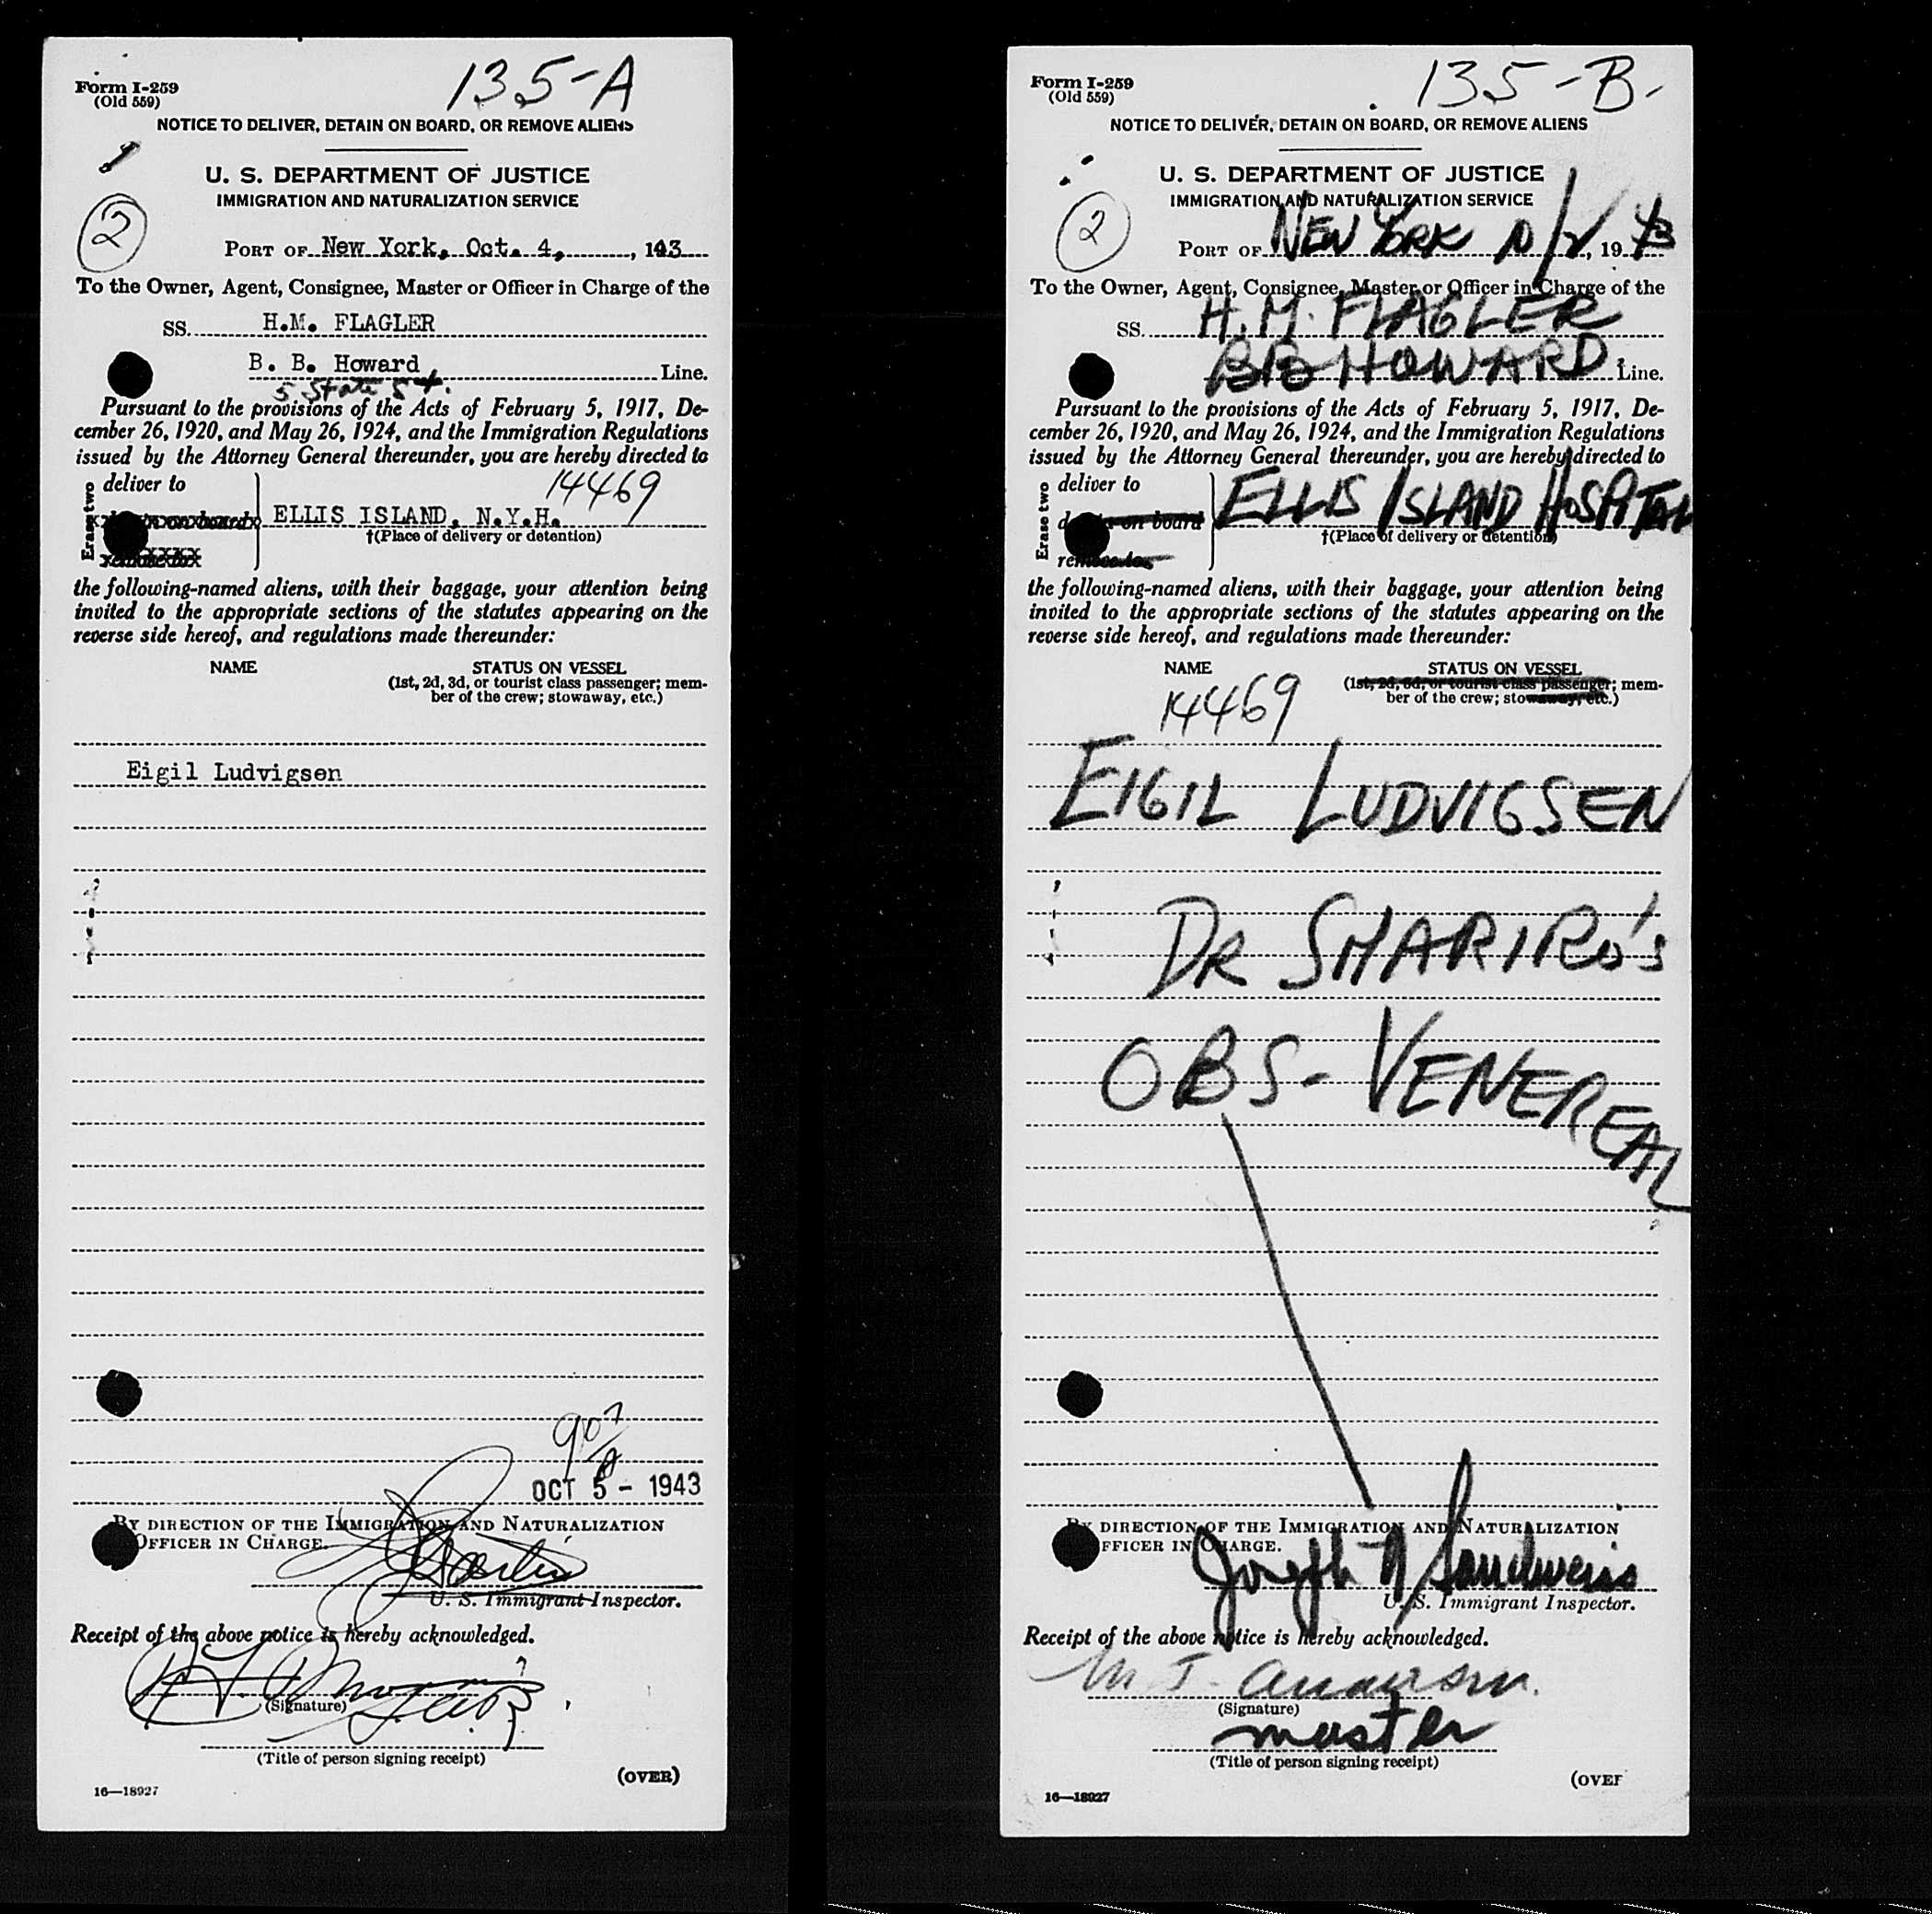 Form I-259
(Old 559)
135-A
NOTICE TO DELIVER, DETAIN ON BOARD, OR REMOVE ALIENS
U. S. DEPARTMENT OF JUSTICE
IMMIGRATION AND NATURALIZATION SERVICE
2
PORT OF New York, Oct. 4, , 143
To the Owner, Agent, Consignee, Master or Officer in Charge of the
SS. H.M. FLAGLER
B. B. Howard Line.
5 State St.
Pursuant to the provisions of the Acts of February 5, 1917, De-
cember 26, 1920, and May 26, 1924, and the Immigration Regulations
issued by the Attorney General thereunder, you are hereby directed to
14469
Erase two
deliver to
ELLIS ISLAND, N.Y.H.
†(Place of delivery or detention)
the following-named aliens, with their baggage, your attention being
invited to the appropriate sections of the statutes appearing on the
reverse side hereof, and regulations made thereunder:
NAME STATUS ON VESSEL
(1st, 2d, 3d, or tourist class passenger; mem-
ber of the crew; stowaway, etc.)
Eigil Ludvigsen
OCT 5 - 1943
BY DIRECTION OF THE IMMIGRATION AND NATURALIZATION
OFFICER IN CHARGE.
U. S. Immigrant Inspector.
Receipt of the above notice is hereby acknowledged.
(Signature)
(Title of person signing receipt)
(OVER)
16—18927
Form I-259
(Old 559)
135-B-
NOTICE TO DELIVER, DETAIN ON BOARD, OR REMOVE ALIENS
U. S. DEPARTMENT OF JUSTICE
IMMIGRATION AND NATURALIZATION SERVICE
2
PORT OF NEW YORK 10/2, 19 43
To the Owner, Agent, Consignee, Master or Officer in Charge of the
SS. H. M. FLAGLER
BB HOWARD Line.
Pursuant to the provisions of the Acts of February 5, 1917, De-
cember 26, 1920, and May 26, 1924, and the Immigration Regulations
issued by the Attorney General thereunder, you are hereby directed to
Erase two
deliver to
on board
ELLIS ISLAND HOSPITAL
†(Place of delivery or detention)
remove to
the following-named aliens, with their baggage, your attention being
invited to the appropriate sections of the statutes appearing on the
reverse side hereof, and regulations made thereunder:
NAME STATUS ON VESSEL
(1st, 2d, 3d, or tourist class passenger; mem-
ber of the crew; stowaway, etc.)
14469
EIGIL LUDVIGSEN
DR SHARIRO'S
OBS- VENEREAL
BY DIRECTION OF THE IMMIGRATION AND NATURALIZATION
FFICER IN CHARGE.
Joseph N Sandweiss
U. S. Immigrant Inspector.
Receipt of the above notice is hereby acknowledged.
M J. Anderson.
(Signature)
master
(Title of person signing receipt)
(OVER
16—18927